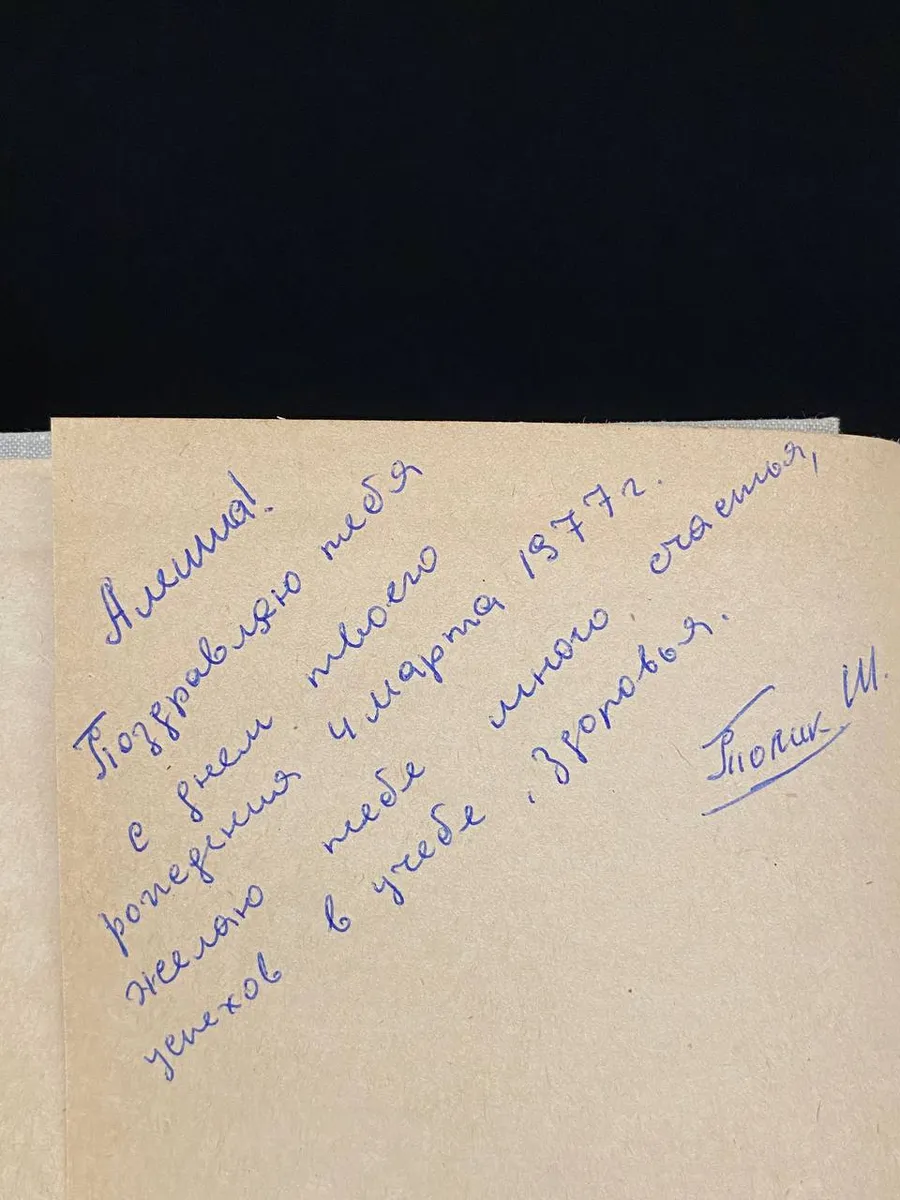 Алеша!
Поздравляю тебя
с днем твоего
рождения 4 марта 1977 г.
желаю тебе много, счастья,
успехов в учебе, здоровья.
Толик Ш.